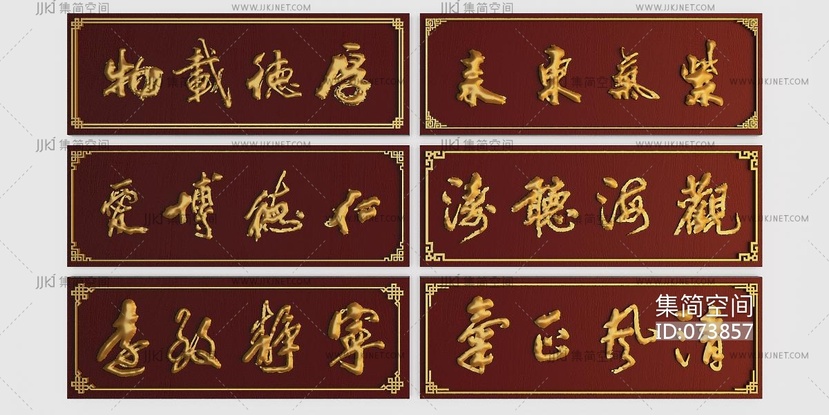 JJKJ 集简空间 WWW.JJKJNET.COM
厚德載物
紫氣東來
仁德博愛
觀海聽濤
寧靜致遠
清風正
集简空间
ID:073857